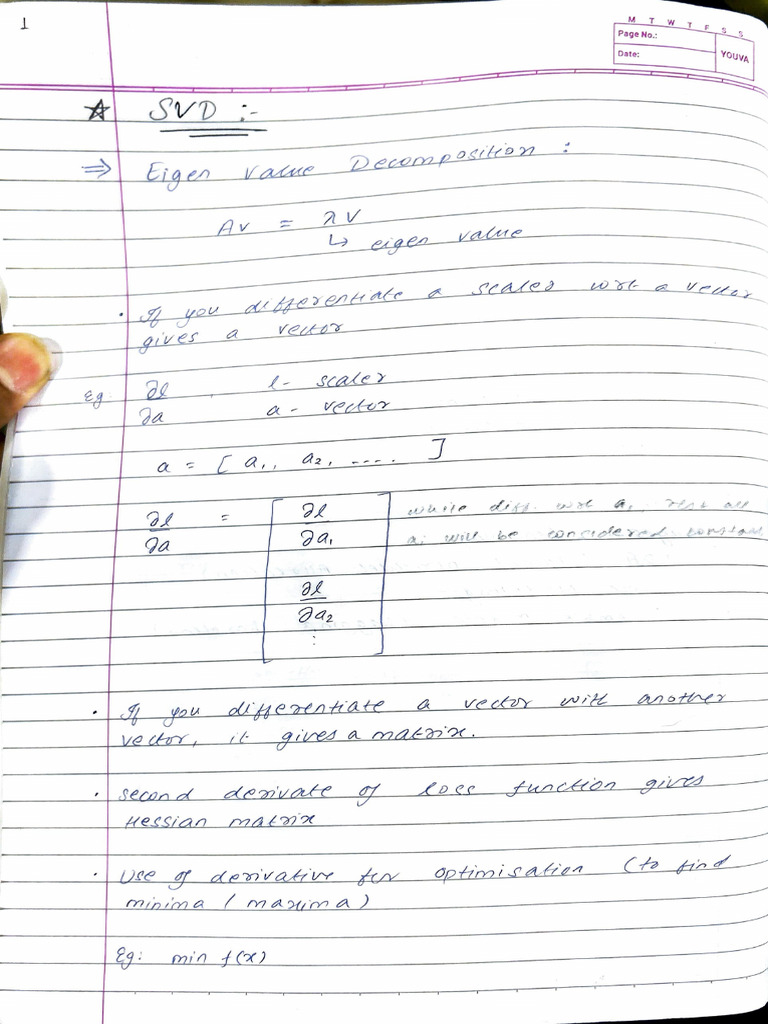 1
M T W T F S S
Page No.:
Date:
YOUVA
☆ SVD :-
⇒ Eigen Value Decomposition :
Av = λv
↳ eigen value
· If you differentiate a scaler wrt a vector
gives a vector
Eg ∂l , l - scaler
∂a a - vector
a = [ a₁, a₂, .... ]
∂l/∂a = [ ∂l/∂a₁ while diff. wrt a₁, rest all
aᵢ will be considered constant
∂l/∂a₂
⋮ ]
· If you differentiate a vector with another
vector, it gives a matrix.
· second derivate of loss function gives
Hessian matrix
· Use of derivative for optimisation (to find
minima / maxima)
Eg: min f(x)